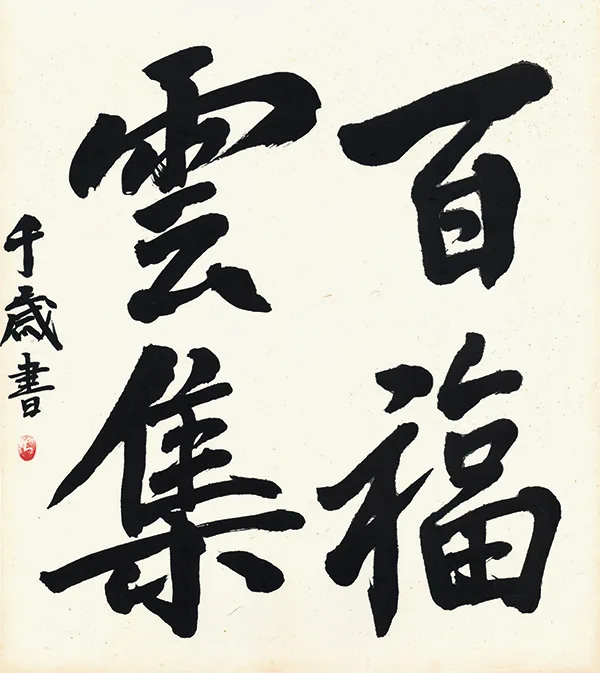 百福
雲集
千歳書